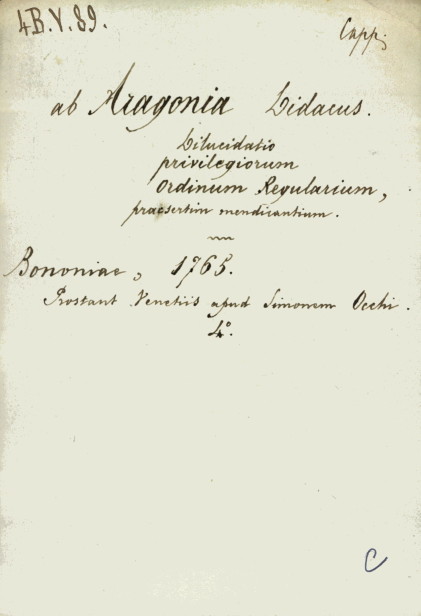 4.B.V.89.
Capp.
ab Aragonia Didacus.
Dilucidatio
privilegiorum
Ordinum Regularium,
praesertim mendicantium.
Bononiae, 1765.
Prostant Venetiis apud Simonem Occhi.
4º.
C